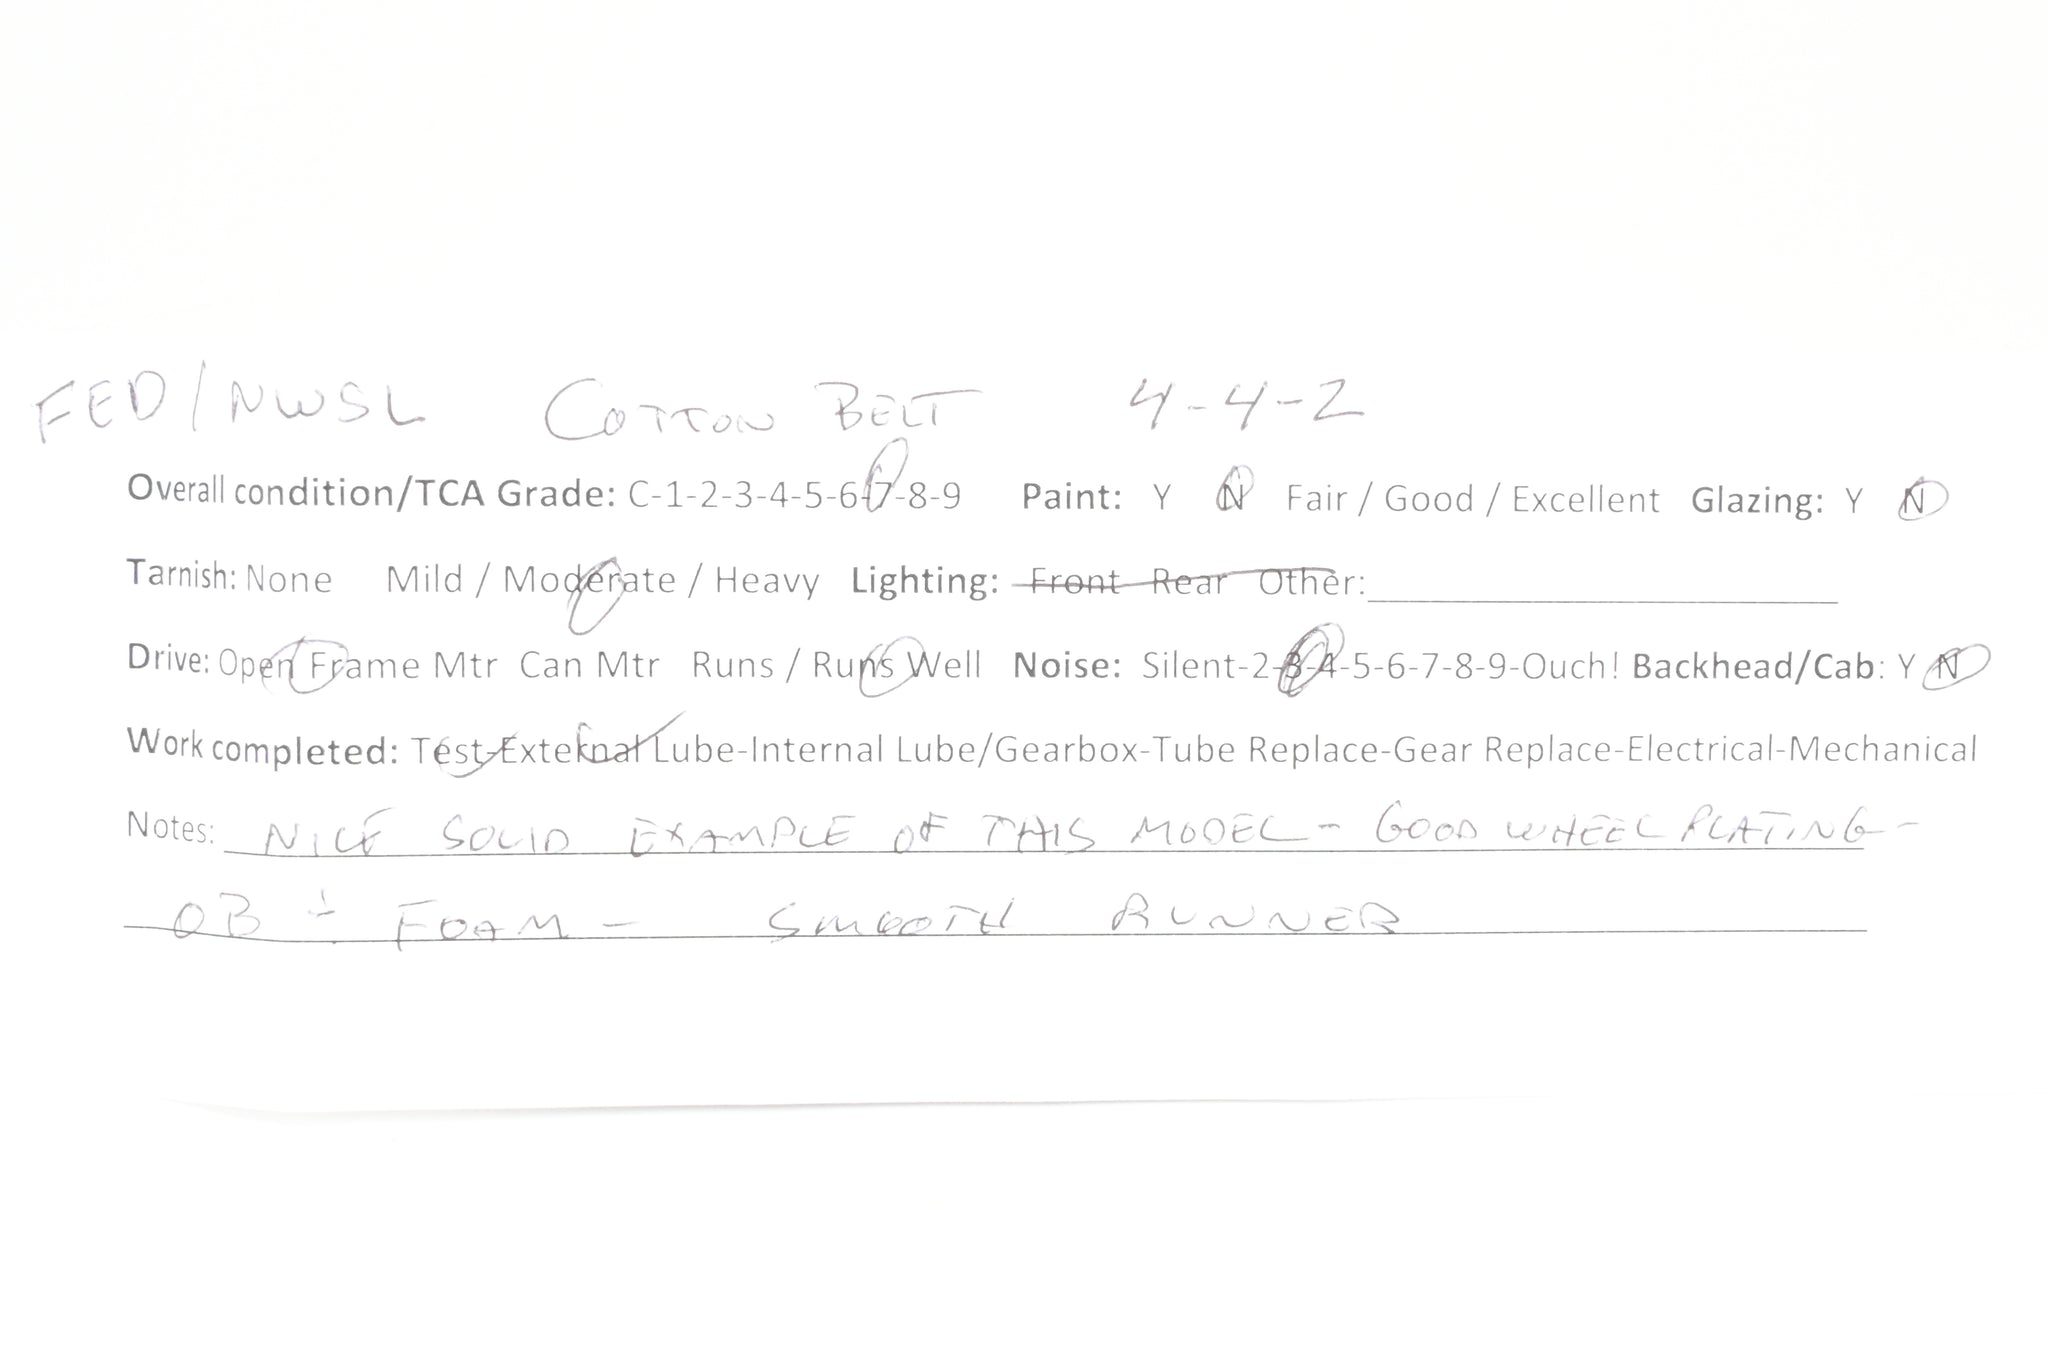 FED/NWSL COTTON BELT 4-4-2
Overall condition/TCA Grade: C-1-2-3-4-5-6-7-8-9 Paint: Y N Fair / Good / Excellent Glazing: Y N
Tarnish: None Mild / Moderate / Heavy Lighting: Front Rear Other:
Drive: Open Frame Mtr Can Mtr Runs / Runs Well Noise: Silent-2-3-4-5-6-7-8-9-Ouch! Backhead/Cab: Y N
Work completed: Test-External Lube-Internal Lube/Gearbox-Tube Replace-Gear Replace-Electrical-Mechanical
Notes: NICE SOLID EXAMPLE OF THIS MODEL - GOOD WHEEL PLATING -
OB + FOAM - SMOOTH RUNNER